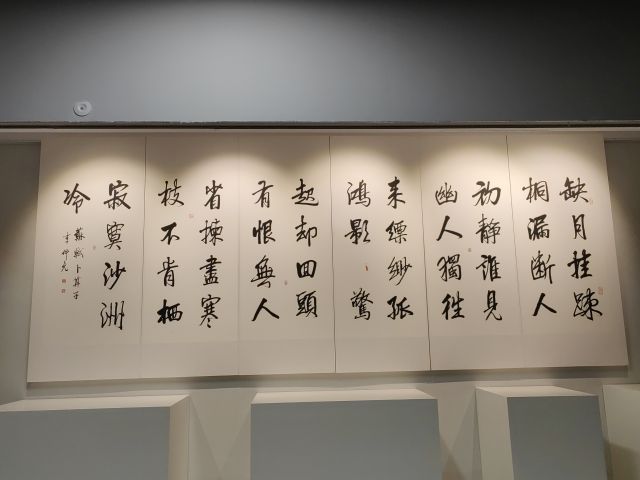 缺月挂踈
桐漏断人
初静誰見
幽人獨徃
来縹緲孤
鴻影 驚
起却回頭
有恨無人
省揀盡寒
枝不肯栖
寂寞沙洲
冷
蘇軾卜算子